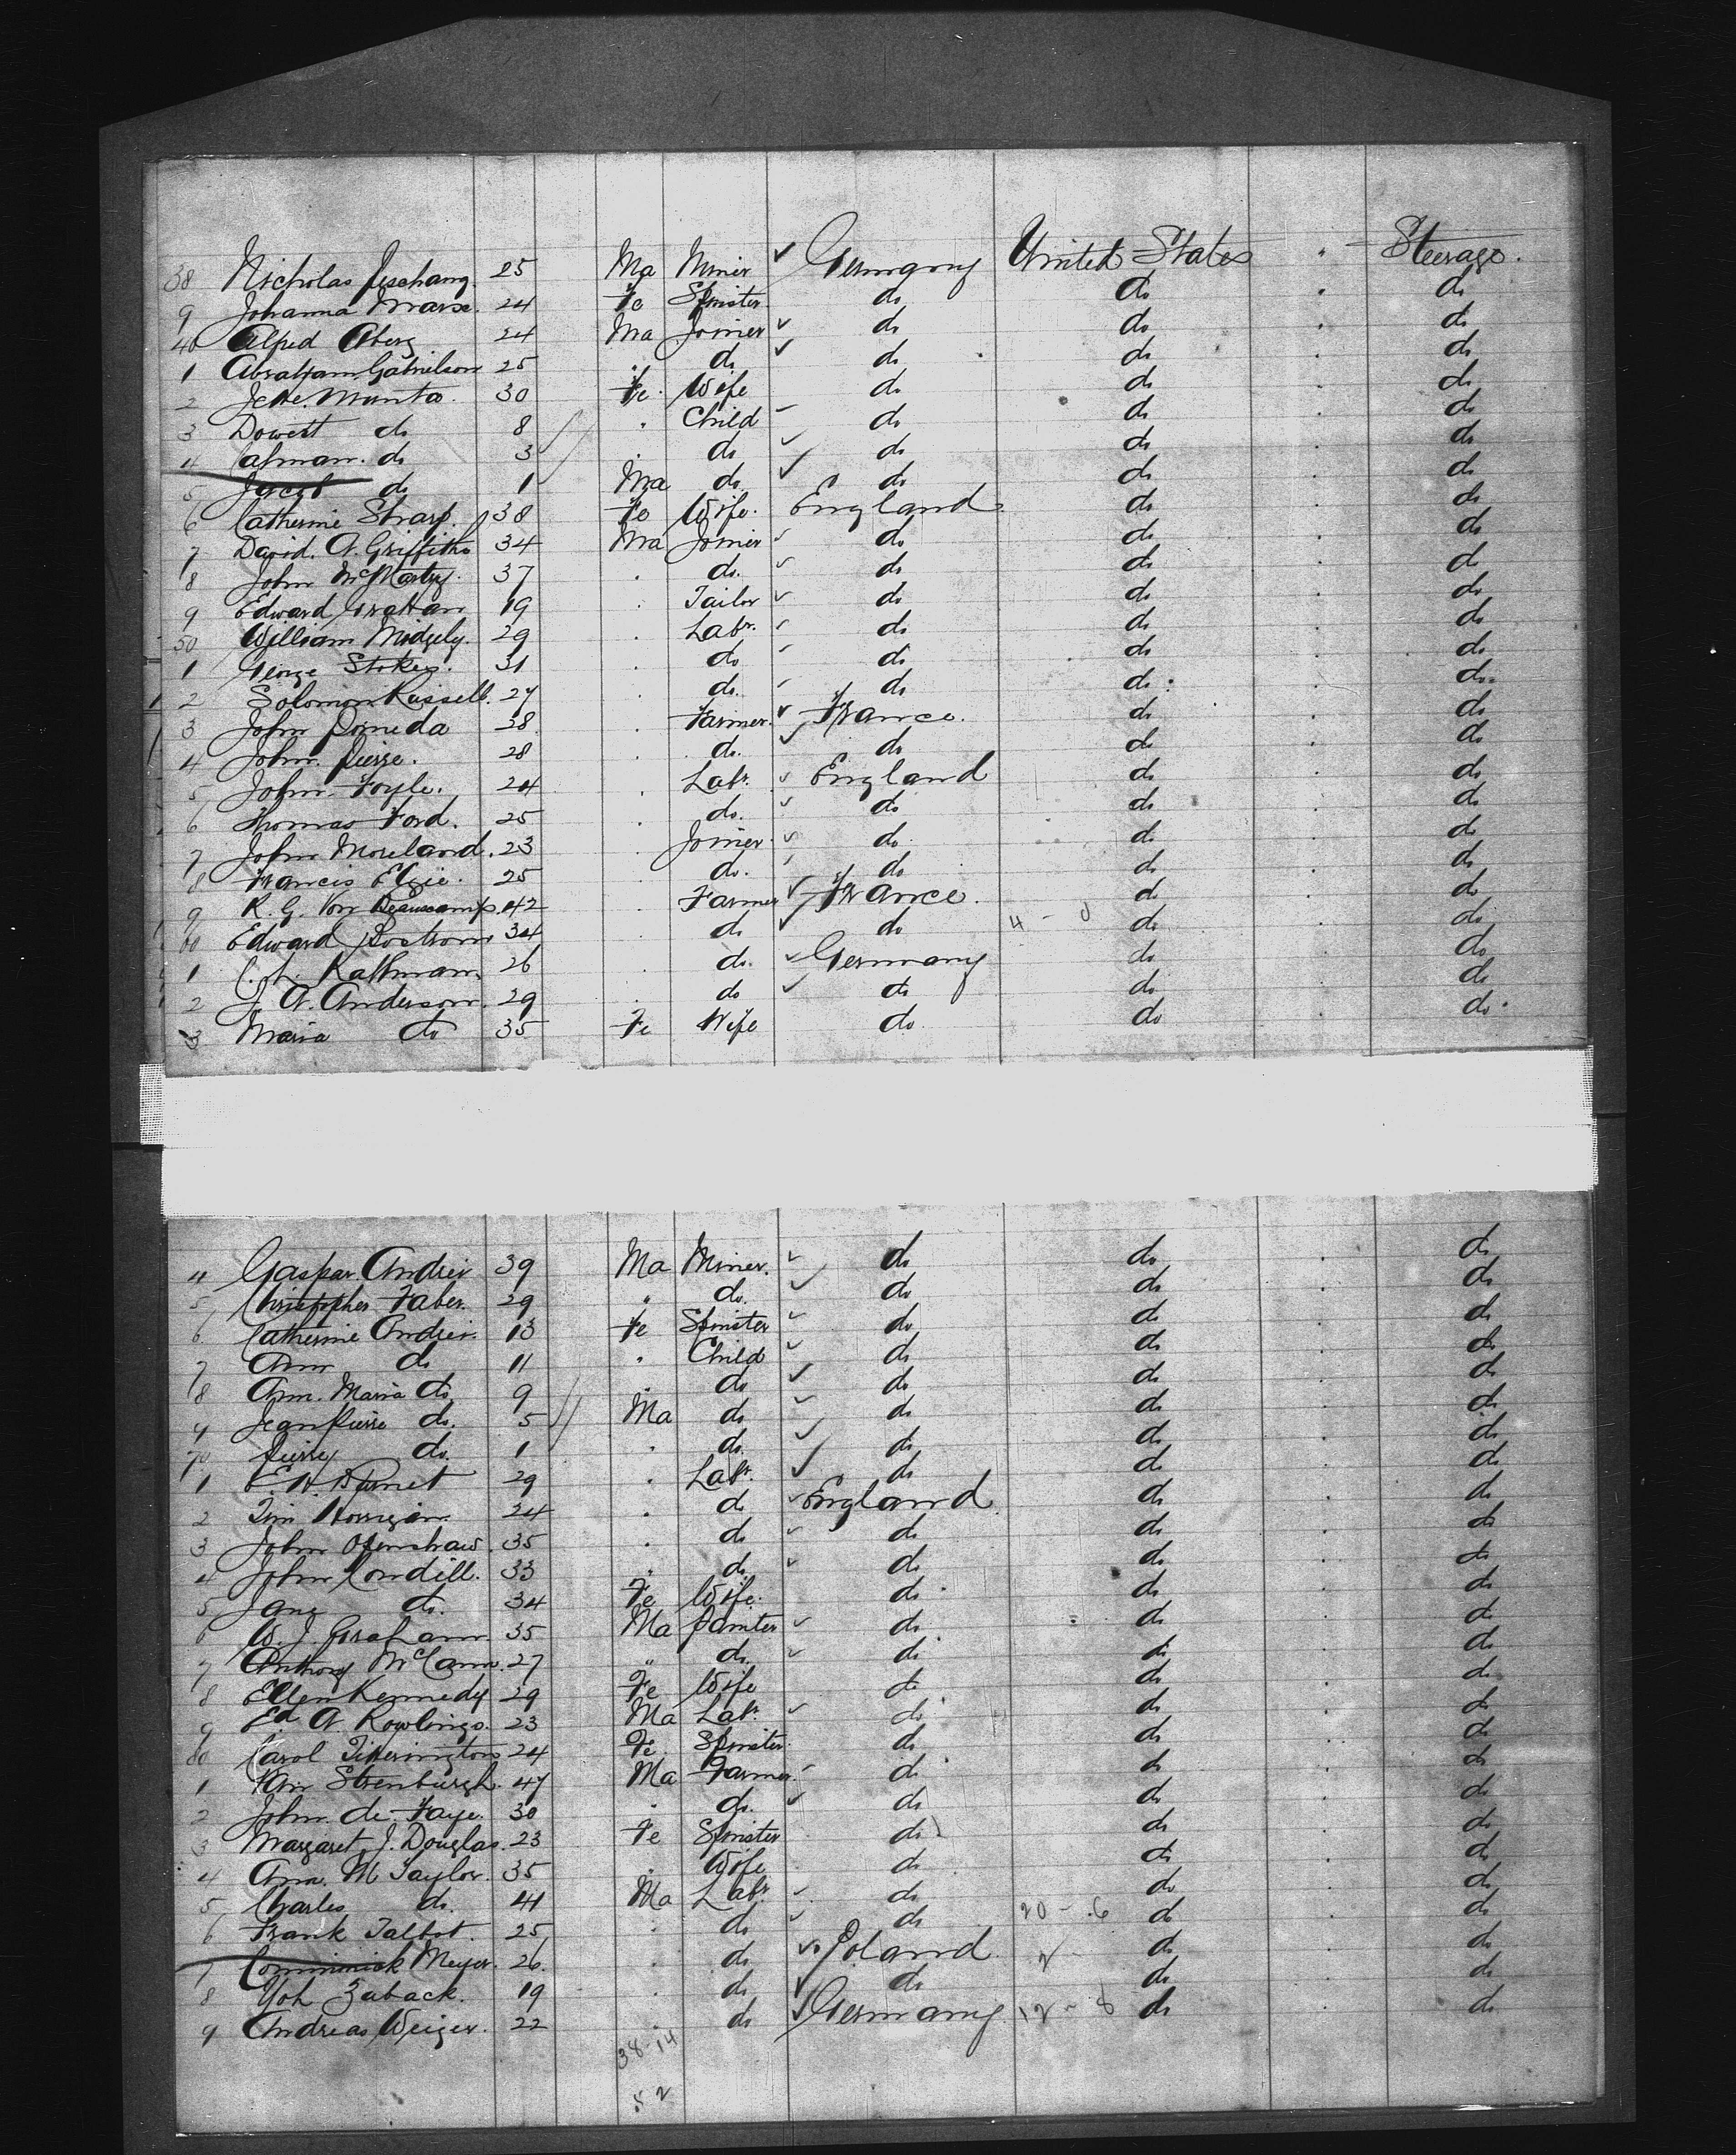 38 Nicholas Peschang 25 Ma Miner ✓ Germany United States " Steerage.
9 Johanna Marx. 24 Fe Spinster do do " do
40 Alfred Aberg 24 Ma Joiner ✓ do do " do
1 Abraham Gabrielson 25 " do ✓ do do " do
2 Jette Munta. 30 Fe Wife do do do
3 Dowett do 8 " Child do do do
4 Calman do 3 " do do do do
5 Jacob do 1 Ma do ✓ do do do
6 Catherine Sharp. 38 Fe Wife. England do do
7 David. A. Griffiths 34 Ma Joiner do do do
8 John McMartry. 37 " do. do do do
9 Edward Grattan 19 " Tailor do do do
50 William Midgely. 29 " Labr. do do do
1 George Stokes. 31 " do do do do
2 Solomon Russell. 27 " do. do do do
3 John Pomeda 28 " Farmer. ✓ France. do do
4 John. Pierre. 28 " do. ✓ do do do
5 John Foyle. 24 " Labr. England do do
6 Thomas Ford. 25 " do. do do do
7 John Moreland. 23 " Joiner. do do do
8 Francis Elzie. 25 " do. do do do
9 R. G. Von Beaucamp. 42 " Farmer ✓ France. do do
60 Edward Bostrom 34 " do ✓ do 4 - 0 do do
1 Kathman 26 " do. ✓ Germany do do
2 J. A. Anderson. 29 " do ✓ do do do
3 Maria do 35 Fe Wife do do do
4 Gaspar Andrei 39 Ma Miner. do do do
5 Christopher Faber. 29 " do. ✓ do do do
6 Catherine Andrei. 13 Fe Spinster do do do
7 Ann do 11 " Child do do do
8 Ann. Maria do 9 " do ✓ do do do
9 Jean Pierre do. 5 Ma do do do do
70 Pierre do. 1 " do. ✓ do do do
1 E. H. 29 " Labr. ✓ do do do
2 Tim Horrigan. 24 " do England do do
3 John Openshaw. 35 " do do do do
4 John Cordill. 33 " do. do do do
5 Jane do. 34 Fe Wife. do do do
6 W. J. Graham. 35 Ma Painter do do do
7 Anthony McCann. 27 " do. do do do
8 Ellen Kennedy 29 Fe Wife do do do
9 Ed A. Rowlings. 23 Ma Labr. do do do
80 Carol Titterington 24 Fe Spinster. do do do
1 Van Strenburgh. 47 Ma Farmer. do do do
2 John. de Faye. 30 " do. do do do
3 Margaret J. Douglas. 23 Fe Spinster do do do
4 Ann. M Taylor. 35 " Wife do do do
5 Charles do. 41 Ma Labr do do do
6 Frank Talbot. 25 " do do 20 - 6 do do
7 Comminick Meyer. 26. " do ✓ Poland 2 - do do
8 Yoh Zaback. 19 " do ✓ do do do
9 Andreas Weiger. 22 " do ✓ Germany 12 - 8 do do
38-14
52